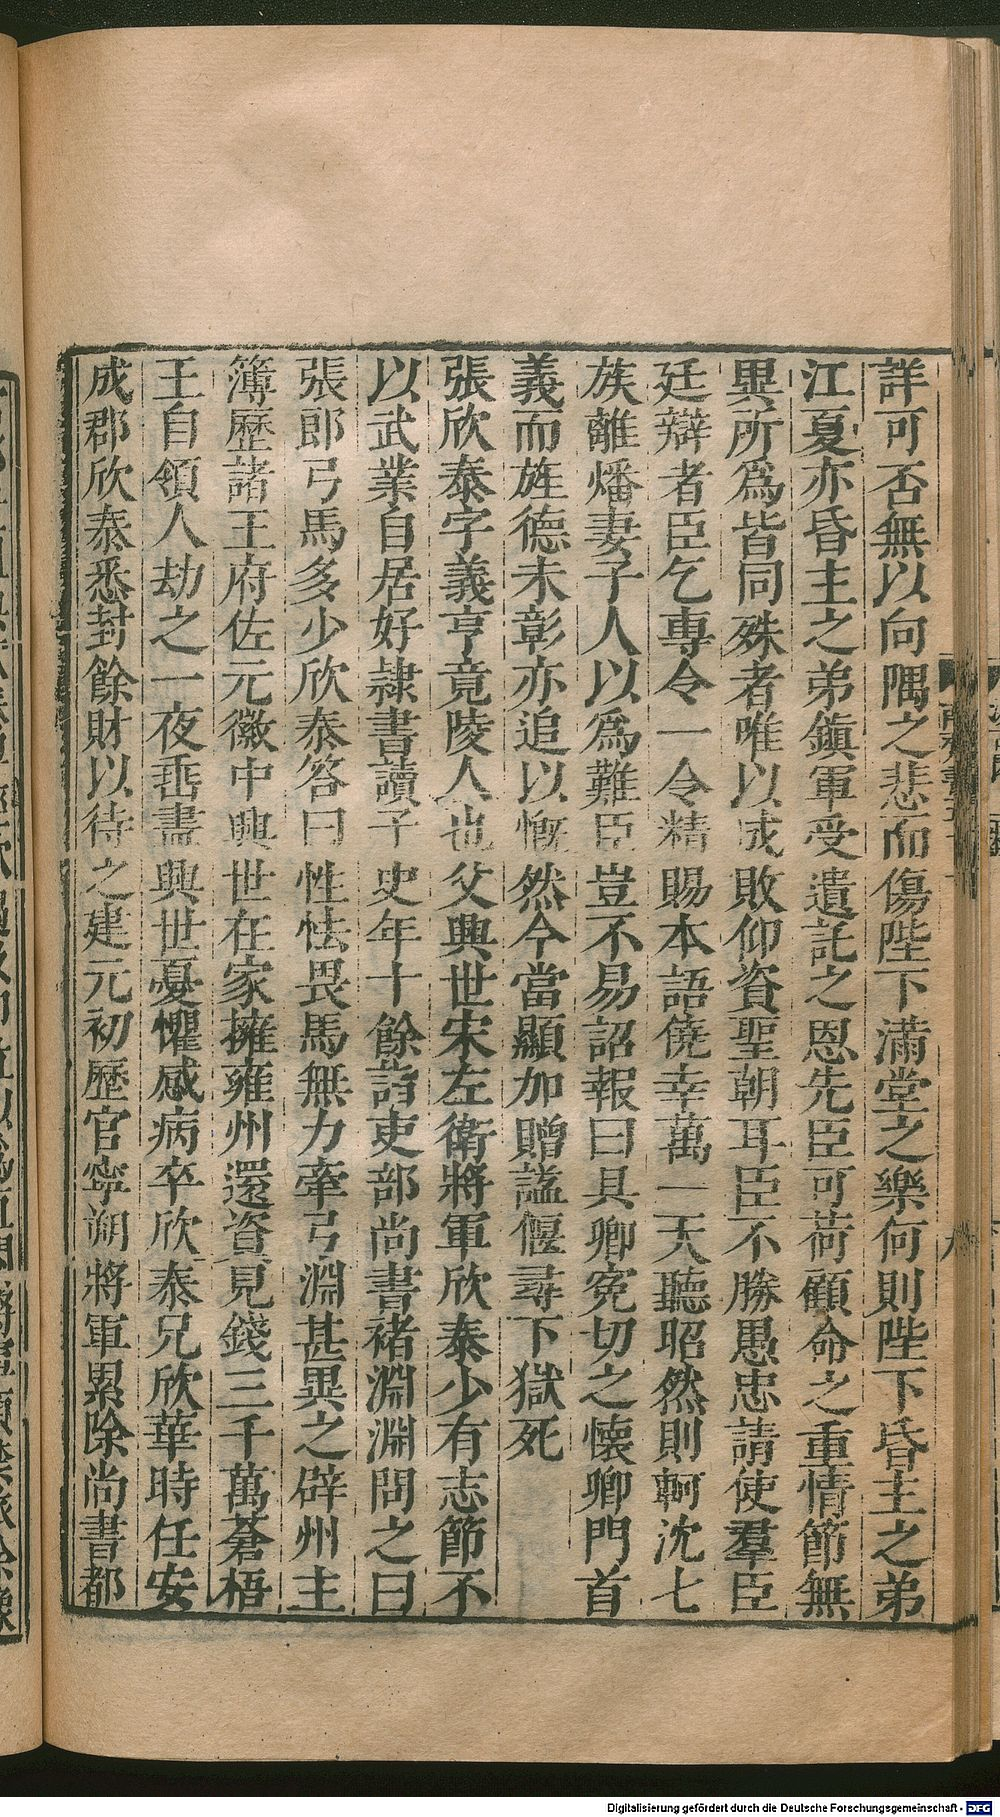 詳可否無以向隅之悲而傷陛下滿堂之樂何則陛下昏主之弟
江夏亦昏主之弟鎮軍受遺託之恩先臣可荷顧命之重情節無
異所為皆同殊者唯以成敗仰資聖朝耳臣不勝愚忠請使羣臣
廷辯者臣乞專令一令精賜本語僥幸萬一天聽昭然則軻沈七
族離燔妻子人以為難臣豈不易詔報曰具卿冤切之懷卿門首
義而旌德未彰亦追以慨然今當顯加贈諡偃尋下獄死
張欣泰字義亨竟陵人也父興世宋左衛將軍欣泰少有志節不
以武業自居好隸書讀子史年十餘詣吏部尚書褚淵淵問之曰
張郎弓馬多少欣泰答曰性怯畏馬無力牽弓淵甚異之辟州主
簿歷諸王府佐元徽中興世在家擁雍州還資見錢三千萬蒼梧
王自領人劫之一夜垂盡興世憂懼感病卒欣泰兄欣華時任安
成郡欣泰悉封餘財以待之建元初歷官寧朔將軍累除尚書都
Digitalisierung gefördert durch die Deutsche Forschungsgemeinschaft - DFG